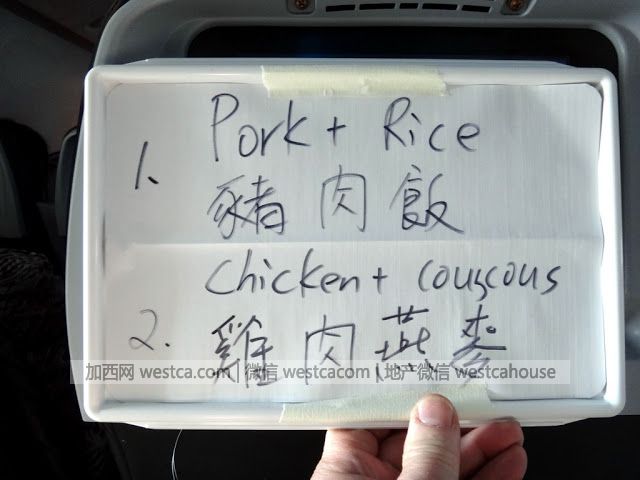 1. Pork + Rice
豬肉飯
2. Chicken + couscous
雞肉燕麥
加西网 westca.com | 微信 westcacom | 地产微信 westcahouse